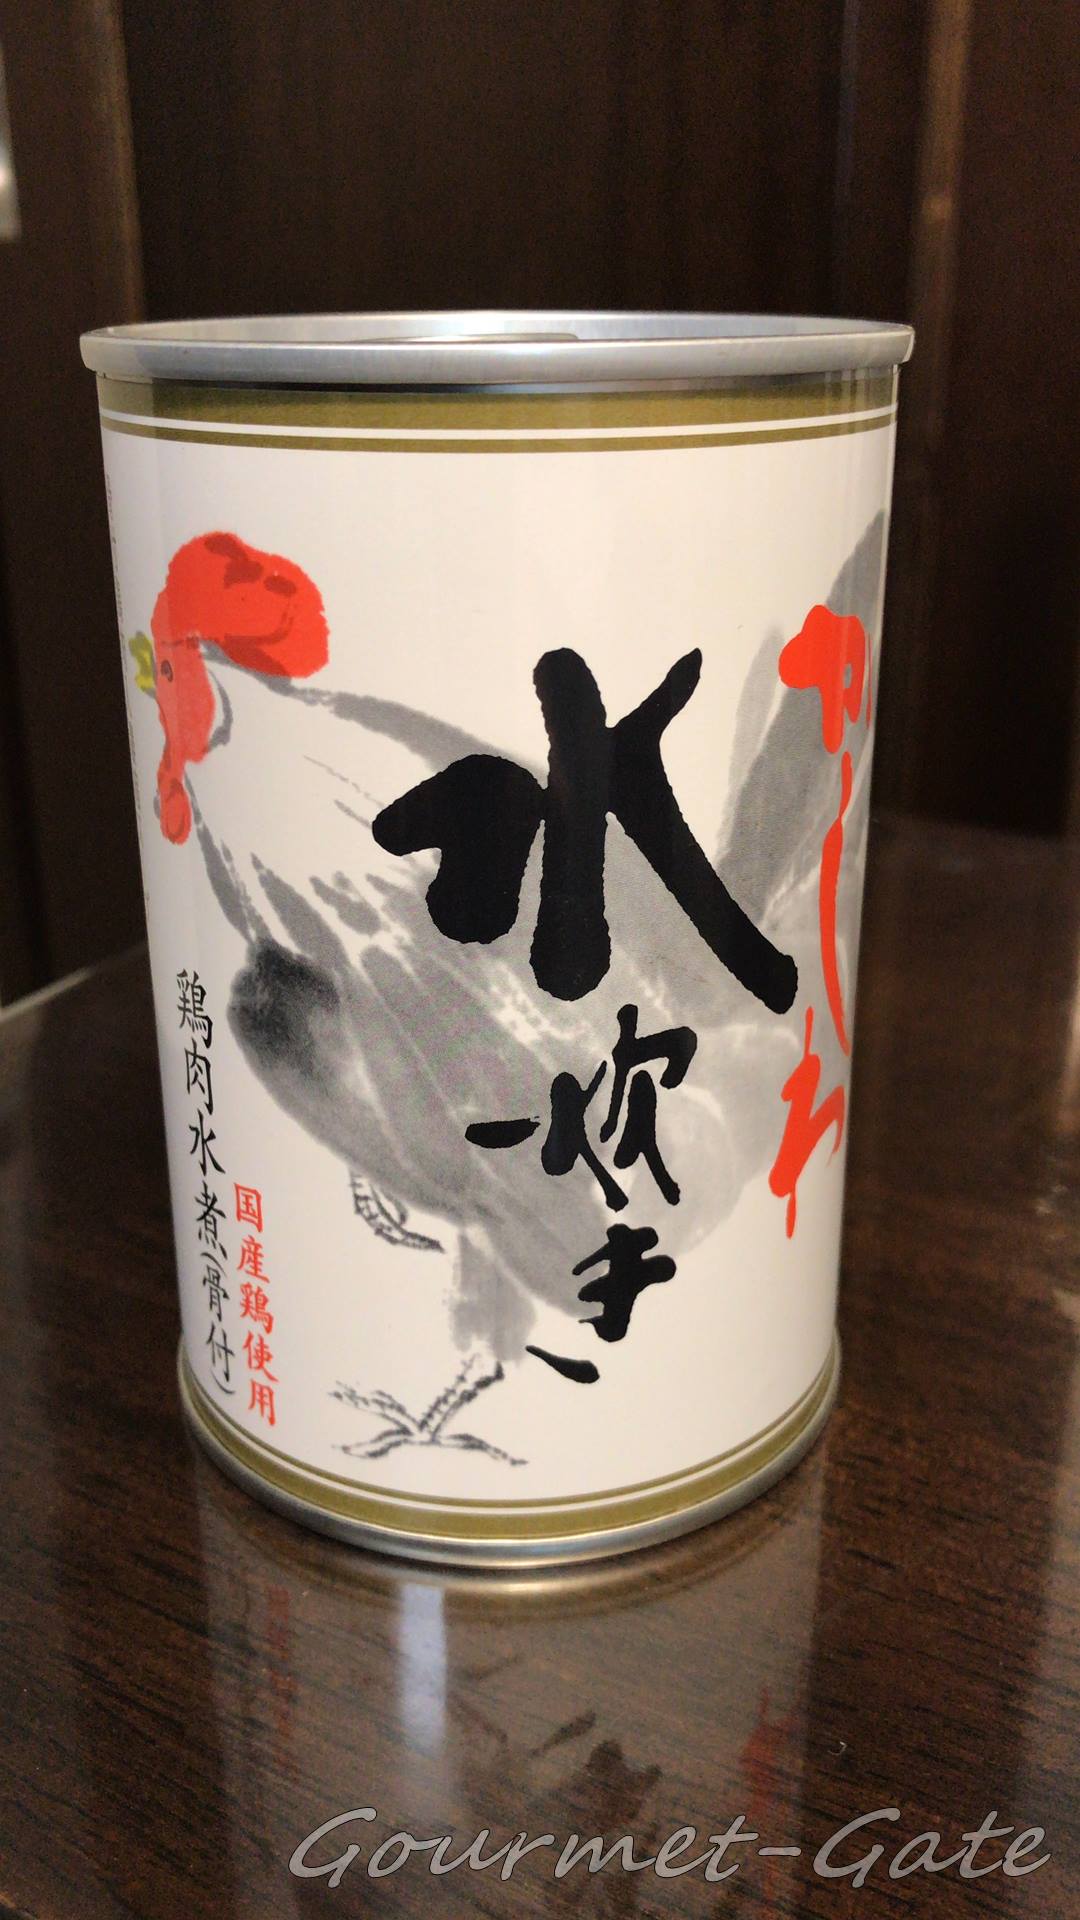 かしわ
水炊き
国産鶏使用
鶏肉水煮(骨付)
Gourmet-Gate